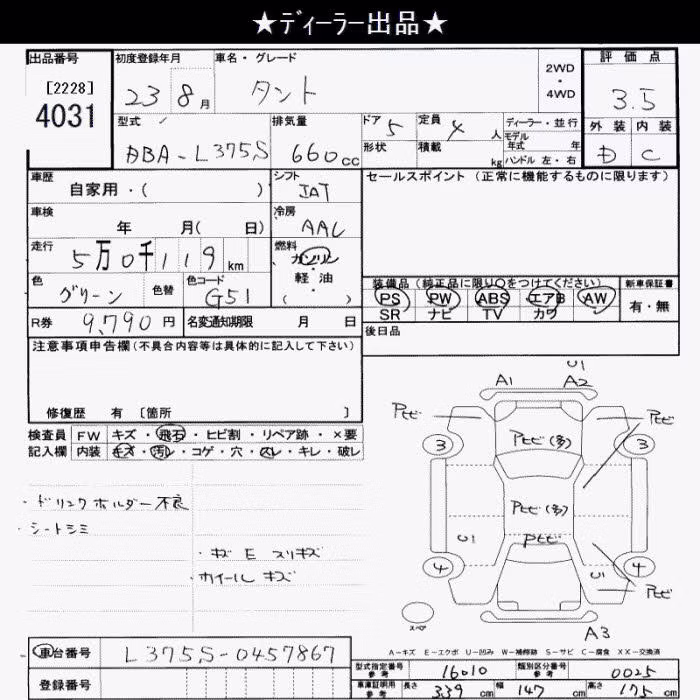 ★ディーラー出品★
出品番号
[2228]
4031
初度登録年月
23 8月
車名・グレード
タント
2WD
・
4WD
評価点
3.5
外装 内装
D C
型式
DBA-L375S
排気量
660cc
ドア
5
形状
定員
4人
積載
kg
ディーラー・並行
モデル
年式 年
ハンドル 左・右
車歴
自家用・( )
シフト
IAT
セールスポイント (正常に機能するものに限ります)
車検
年 月( 日)
冷房
AAC
走行
5万0千119km
燃料
ガソリン
・
軽油
( )
色
グリーン
色替
色コード
G51
装備品 (純正品に限り○をつけてください)
PS PW ABS エアB AW
SR ナビ TV カワ
新車保証書
有・無
R券 9,790円 名変通知期限 月 日
後日品
注意事項申告欄(不具合内容等は具体的に記入して下さい)
修復歴 有 [箇所 ]
検査員 FW キズ・飛石・ヒビ割・リペア跡・×要
記入欄 内装 キズ・汚レ・コゲ・穴・スレ・キレ・破レ
・ドリンクホルダー不良
・シートシミ
・キズ E スリキズ
・ホイール キズ
U1
A1 A2
Pヒビ
Pヒビ
3
Pヒビ(多)
3
Pヒビ(多)
U1
Pヒビ
4
U1
4
Pヒビ
スペア
A3
A-キズ E-エクボ U-凹み W-補修跡 S-サビ C-腐食 XX-交換済
車台番号 L375S-0457867
登録番号
型式指定番号
参考
16010
類別区分番号
参考
0025
車庫証明用
参考
長さ 339cm 幅 147cm 高さ 175cm